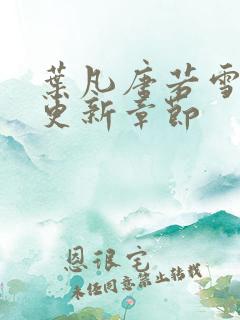 葉凡唐若雪
更新章節
恩很宅
未经同意禁止转载